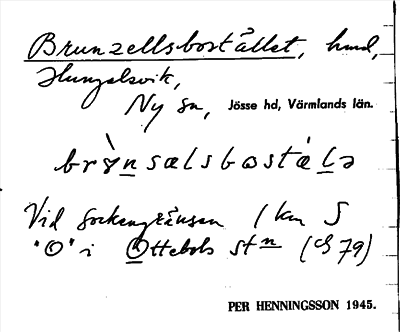 Brunzellsbostället, hmd,
Hungalsvik,
Ny sn, Jösse hd, Värmlands län.
brònsælsbostǽlə
Vid sockengränsen 1 km S
"O" i Ottebols stn (ch 79)
PER HENNINGSSON 1945.